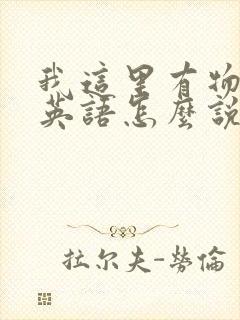 我這里有物
英語怎麼說
拉尔夫-勞倫